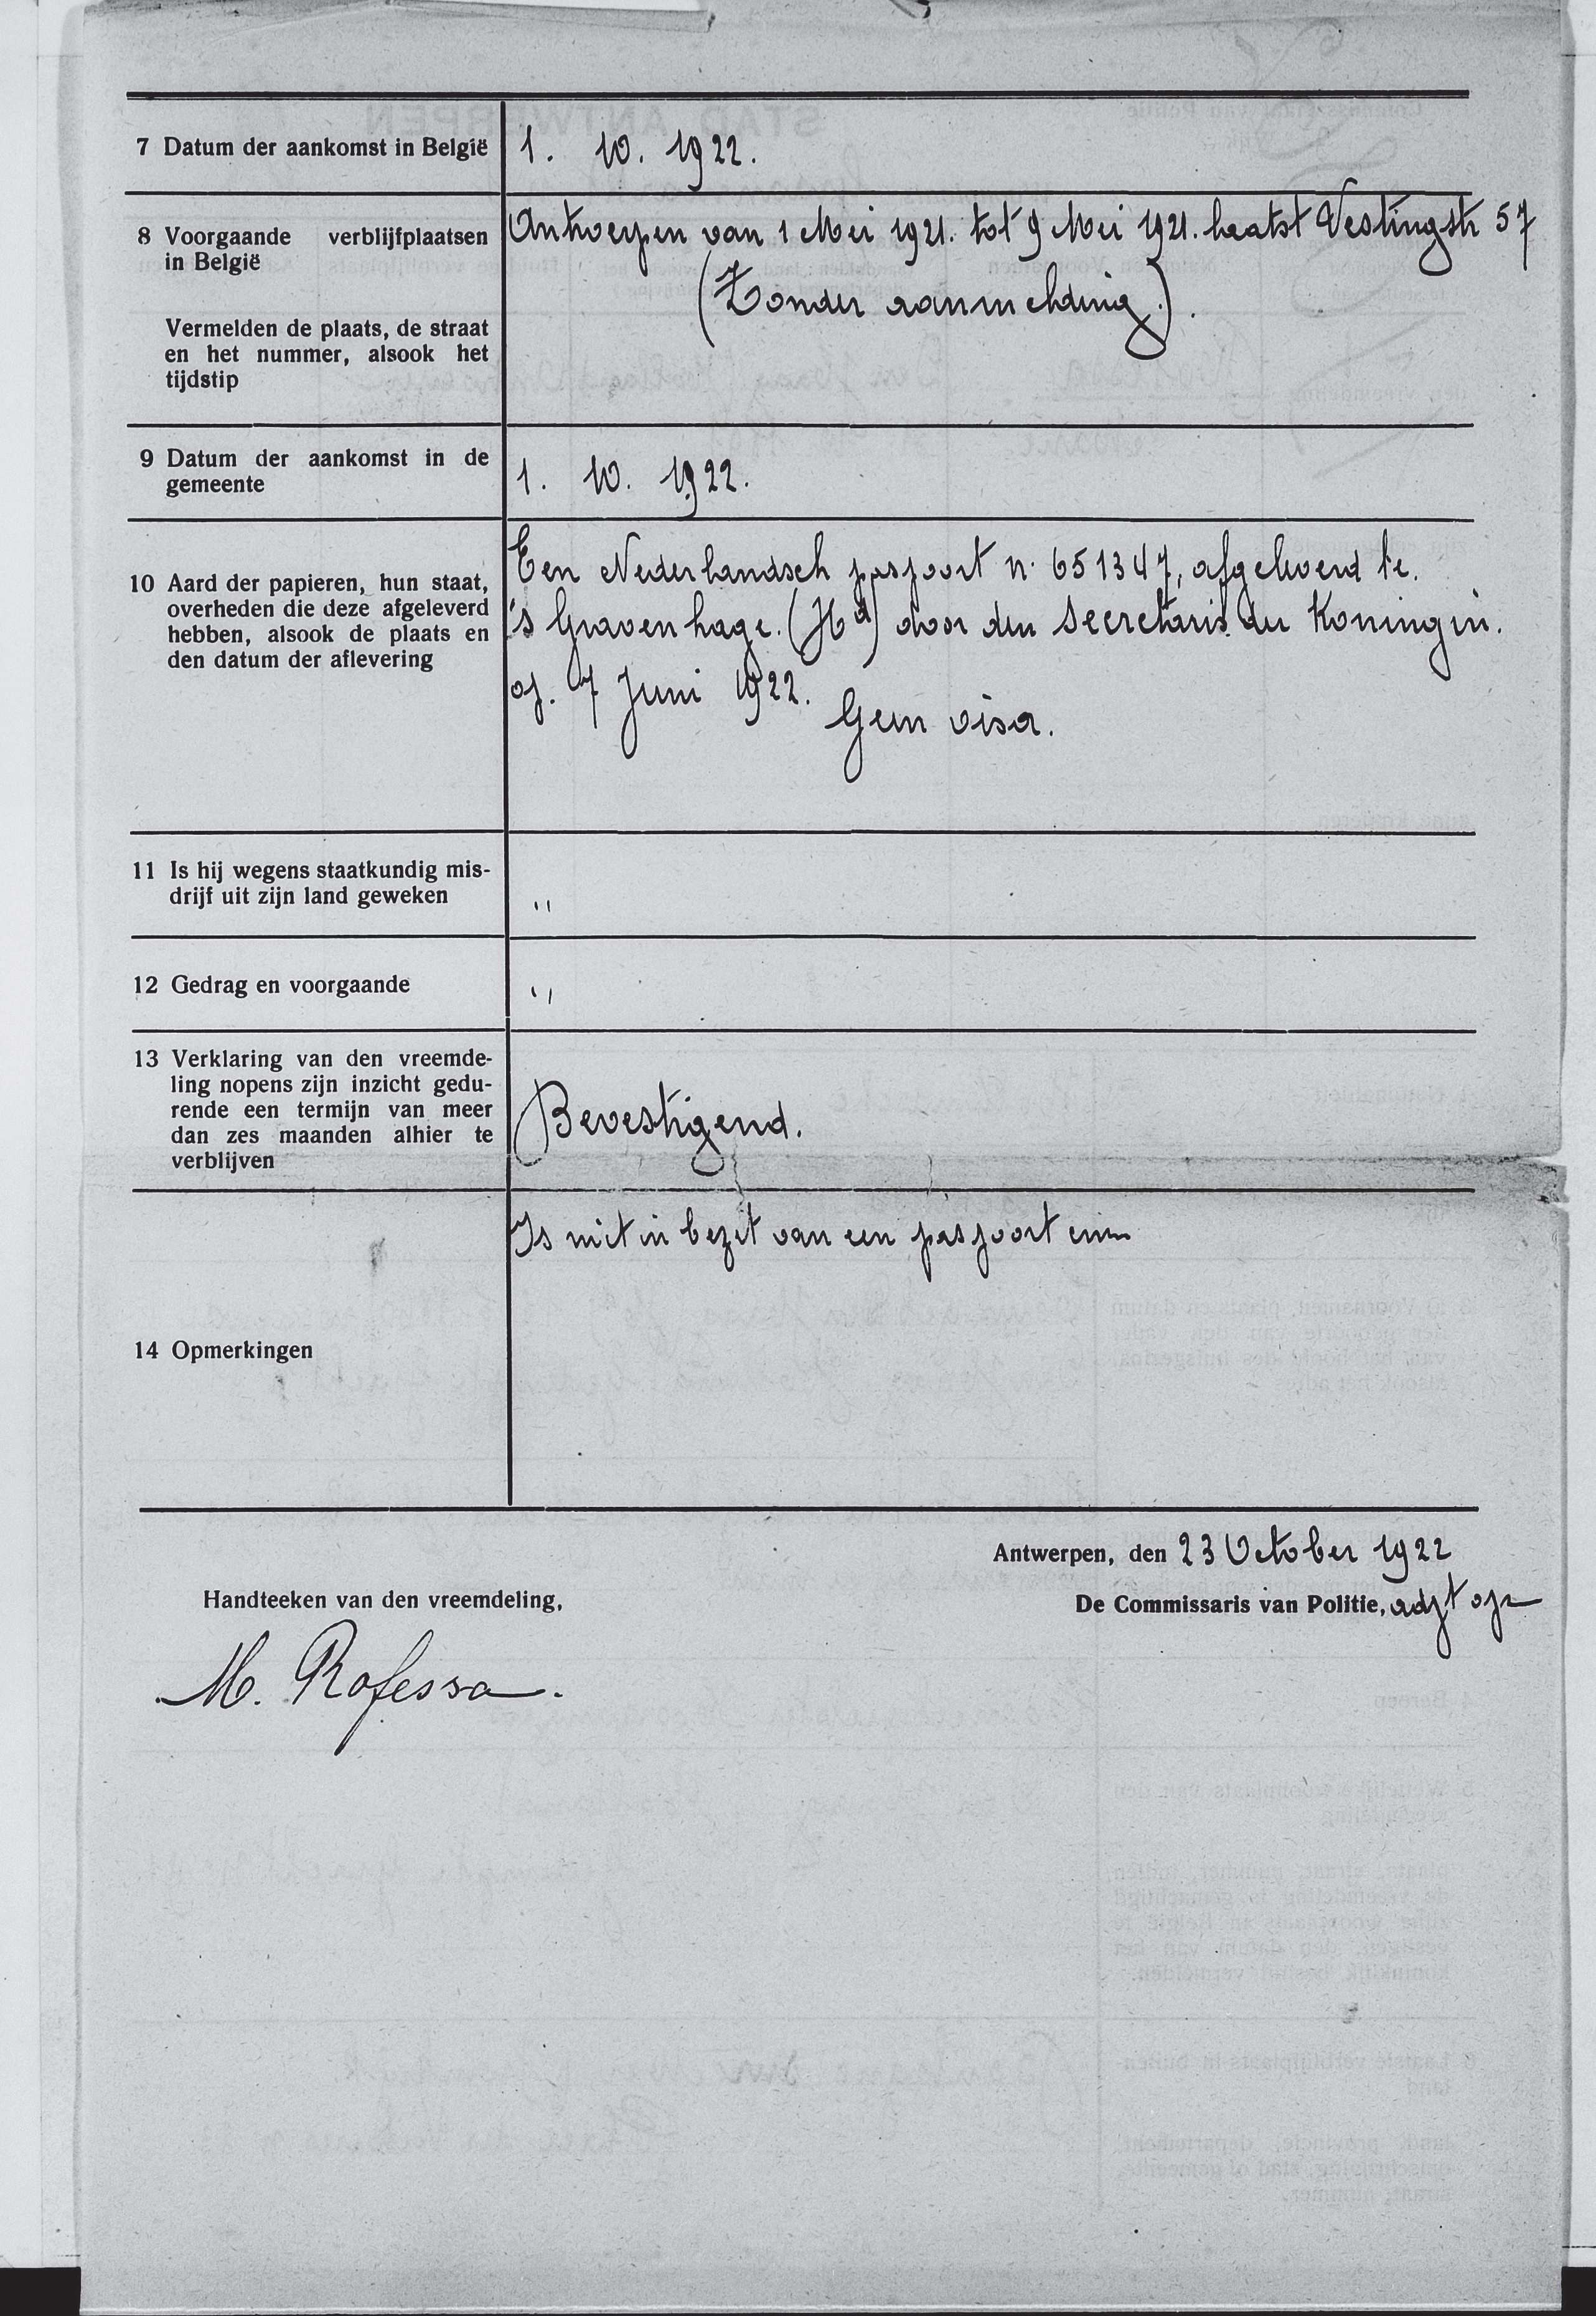 7 Datum der aankomst in België
1. 10. 1922.
8 Voorgaande verblijfplaatsen
in België
Vermelden de plaats, de straat
en het nummer, alsook het
tijdstip
Antwerpen van 1 Mei 1921. tot 9 Mei 1921. laatst Vestingstr 57
(Zonder aanmelding.).
9 Datum der aankomst in de
gemeente
1. 10. 1922.
10 Aard der papieren, hun staat,
overheden die deze afgeleverd
hebben, alsook de plaats en
den datum der aflevering
Een Nederlandsch paspoort n. 651347, afgeleverd te.
's Gravenhage. (Hd) door den Secretaris der Koningin.
op. 7 Juni 1922.
Geen visa.
11 Is hij wegens staatkundig mis-
drijf uit zijn land geweken
"
12 Gedrag en voorgaande
"
13 Verklaring van den vreemde-
ling nopens zijn inzicht gedu-
rende een termijn van meer
dan zes maanden alhier te
verblijven
Bevestigend.
14 Opmerkingen
Is niet in bezit van een paspoort
Antwerpen, den 23 October 1922
Handteeken van den vreemdeling,
De Commissaris van Politie, adjt
M. Rofessa.